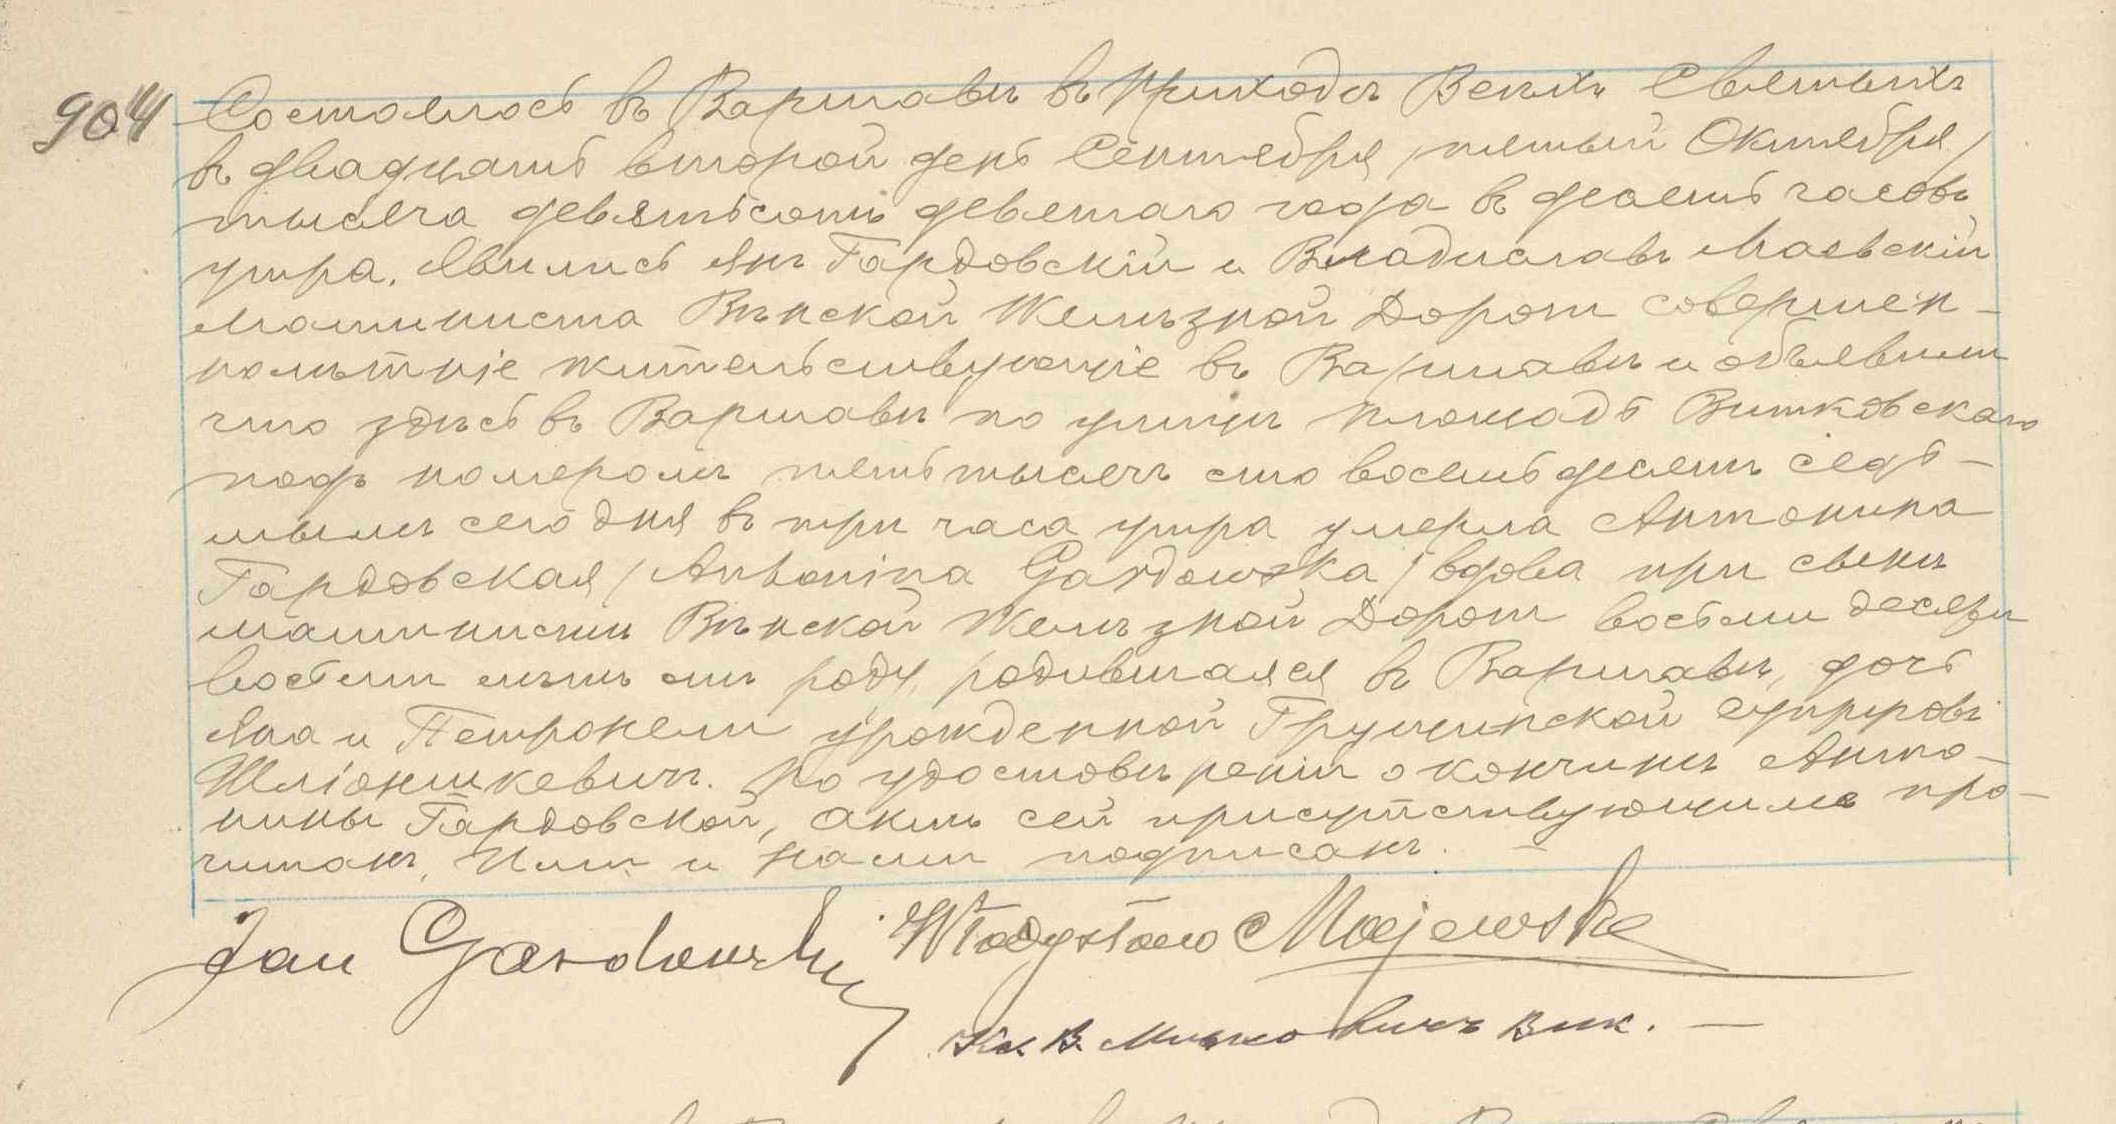 904
Состоялось въ Варшавѣ въ Приходѣ Всѣхъ Святыхъ
въ двадцать второй день Сентября / пятый Октября /
тысяча девятьсотъ девятаго года въ десять часовъ
утра. Явились Янъ Гардовскій и Владиславъ Маевскій
машиниста Вѣнской Желѣзной Дороги совершен-
нолѣтніе жительствующіе въ Варшавѣ и объявили
что здѣсь въ Варшавѣ по улицѣ площадь Витковскаго
подъ номеромъ пять тысячъ сто восемьдесятъ седь-
мымъ сегодня въ три часа утра умерла Антонина
Гардовская / Antonina Gardowska / вдова при сынѣ
машинистѣ Вѣнской Желѣзной Дороги
лѣтъ отъ роду, родившаяся въ Варшавѣ, дочь
Яна и Петронели урожденной супруговъ
По удостовѣреніи о кончинѣ Анто-
нины Гардовской, актъ сей присутствующимъ про-
читанъ, Ими и Нами подписанъ. –
Jan Gardowski Władysław Majewski
Кс. В. Вик. –